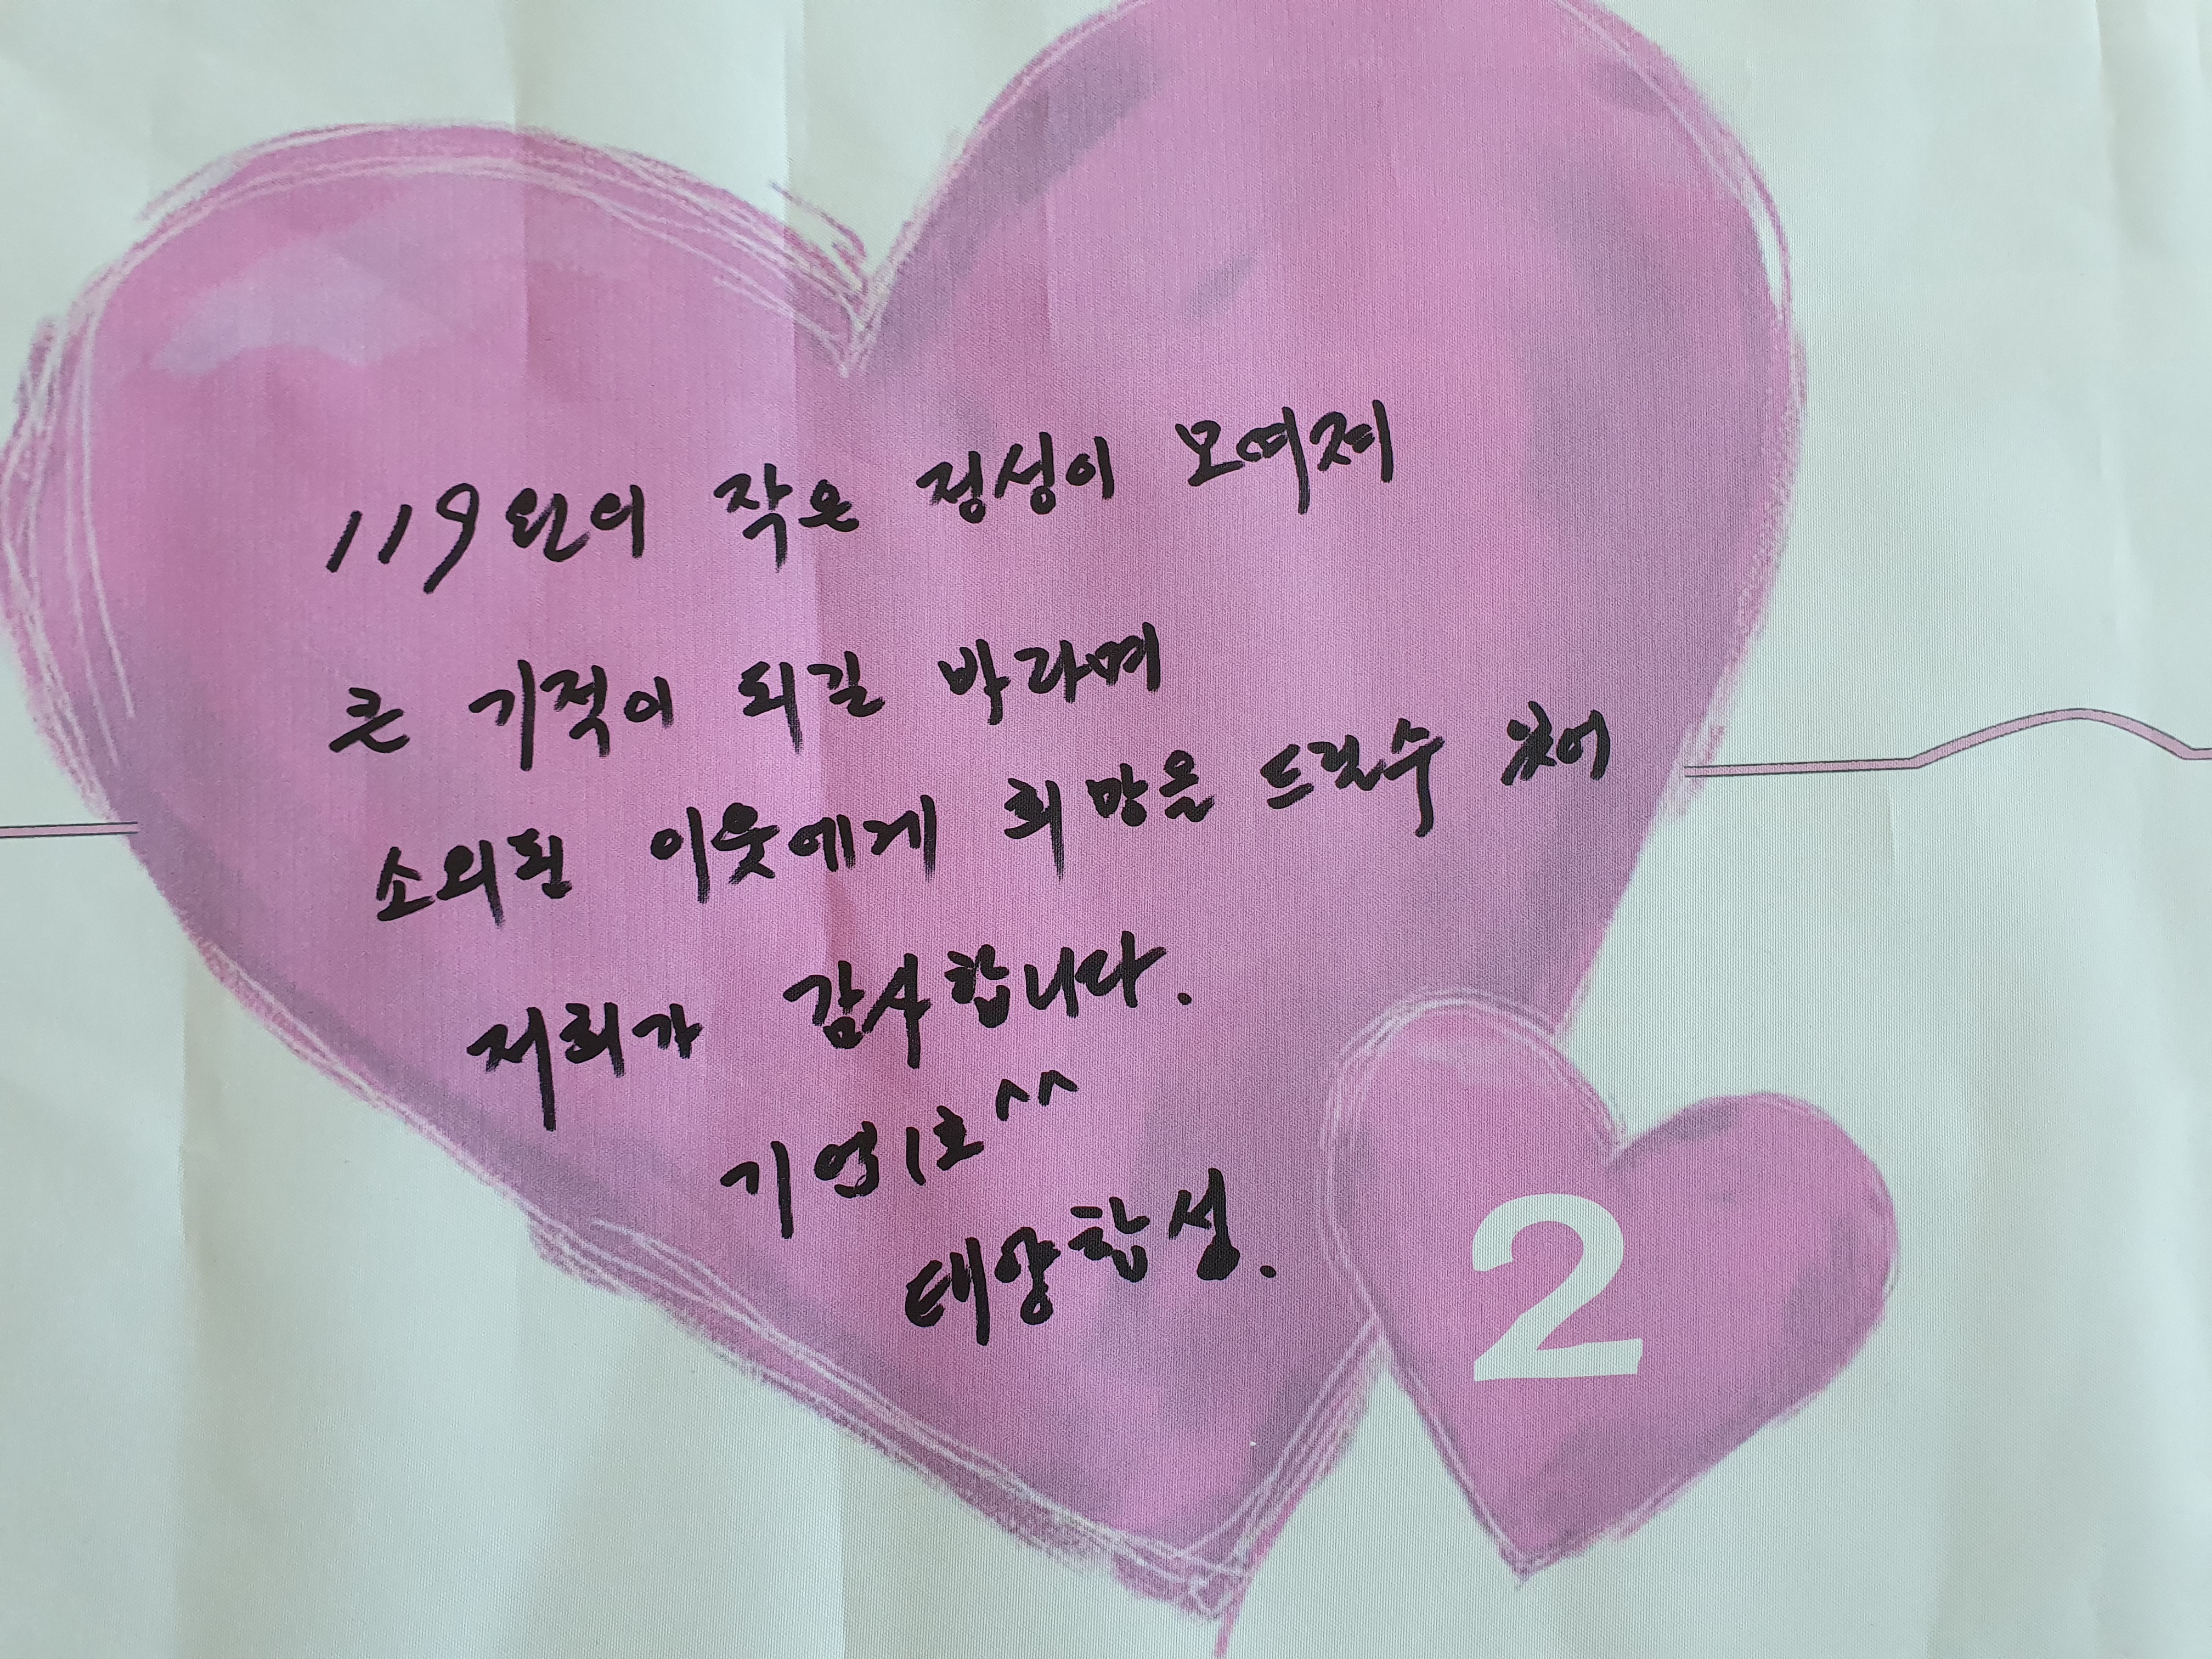 119원의 작은 정성이 모여져
큰 기적이 되길 바라며
소외된 이웃에게 희망을 드릴수 있어
저희가 감사합니다.
기업1호^^
태양합성.
2